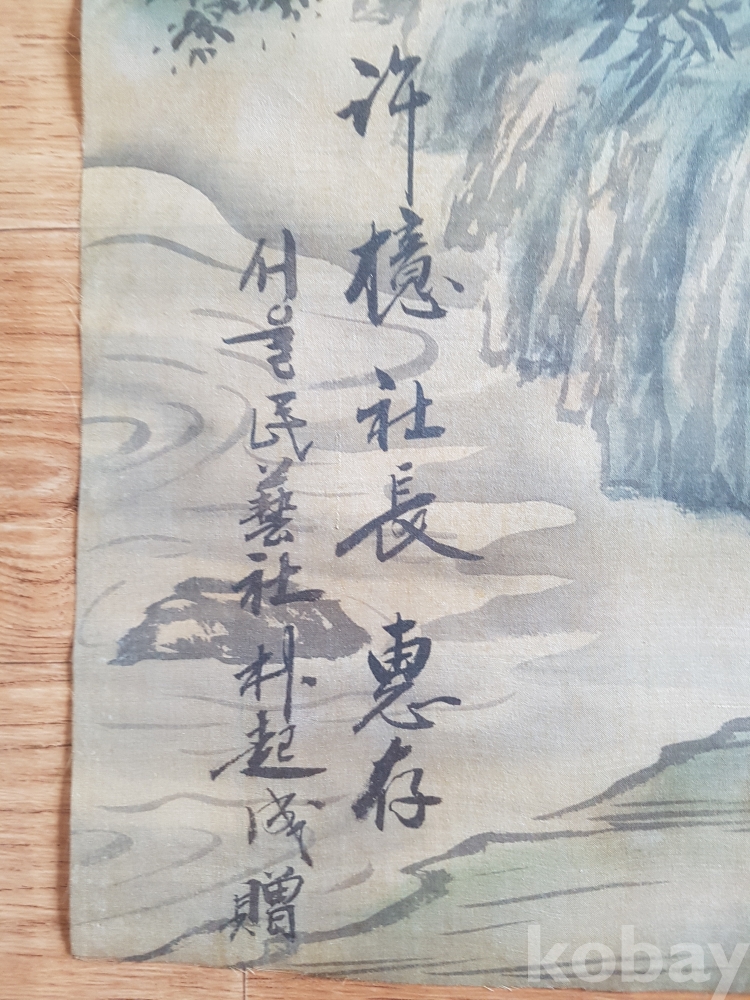 许檍社長 惠存
서울民藝社 朴起成 贈
kobay